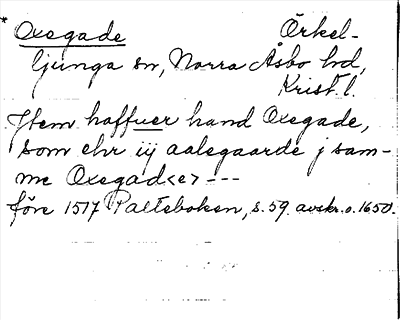 * Oxegade Örkel-
ljunga sn, Norra Åsbo hd,
Krist. l.
Jtem haffuer hand Oxegade,
som ehr iij aalegaarde j sam-
me Oxegad<e> ---
före 1517 Palteboken, s. 59. avskr. o. 1650.